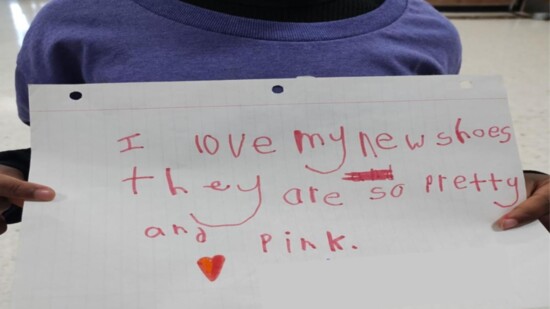 I love my new shoes
they are so pretty
and pink.